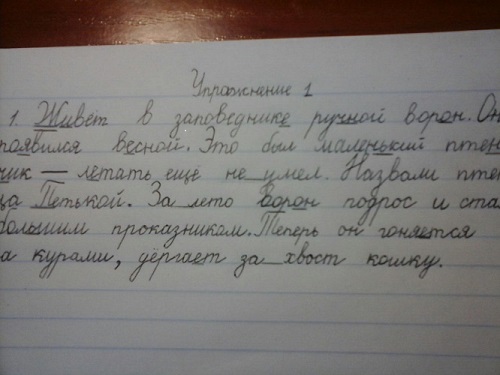 Упражнение 1
1. Живёт в заповеднике ручной ворон. Он
появился весной. Это был маленький птен
чик — летать ещё не умел. Назвали птен
ца Петькой. За лето ворон подрос и ста
большим проказником. Теперь он гоняется
а курами, дёргает за хвост кошку.